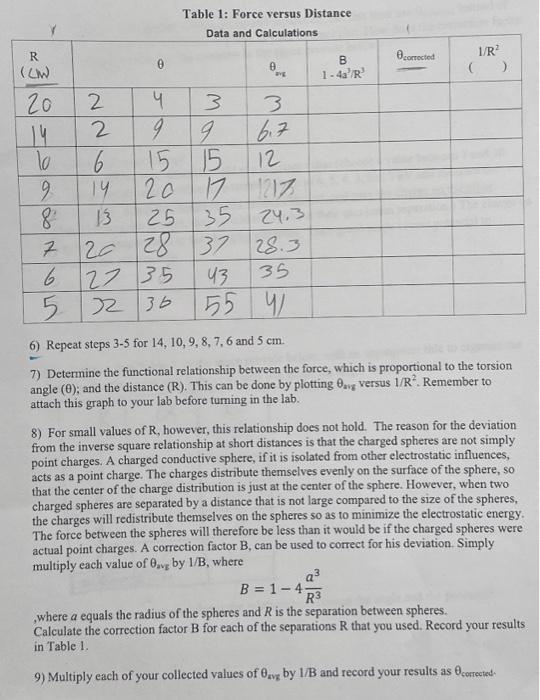 Table 1: Force versus Distance
Data and Calculations
R (cm) θ θavg B 1 - 4a³/R³ θcorrected 1/R² ( )
20 2 4 3 3
14 2 9 9 6.7
10 6 15 15 12
9 14 20 17 17
8 13 25 35 24.3
7 20 28 37 28.3
6 27 35 43 35
5 32 36 55 41
6) Repeat steps 3-5 for 14, 10, 9, 8, 7, 6 and 5 cm.
7) Determine the functional relationship between the force, which is proportional to the torsion
angle (θ); and the distance (R). This can be done by plotting θavg versus 1/R². Remember to
attach this graph to your lab before turning in the lab.
8) For small values of R, however, this relationship does not hold. The reason for the deviation
from the inverse square relationship at short distances is that the charged spheres are not simply
point charges. A charged conductive sphere, if it is isolated from other electrostatic influences,
acts as a point charge. The charges distribute themselves evenly on the surface of the sphere, so
that the center of the charge distribution is just at the center of the sphere. However, when two
charged spheres are separated by a distance that is not large compared to the size of the spheres,
the charges will redistribute themselves on the spheres so as to minimize the electrostatic energy.
The force between the spheres will therefore be less than it would be if the charged spheres were
actual point charges. A correction factor B, can be used to correct for his deviation. Simply
multiply each value of θavg by 1/B, where
B = 1 − 4 a³/R³
,where a equals the radius of the spheres and R is the separation between spheres.
Calculate the correction factor B for each of the separations R that you used. Record your results
in Table 1.
9) Multiply each of your collected values of θavg by 1/B and record your results as θcorrected.